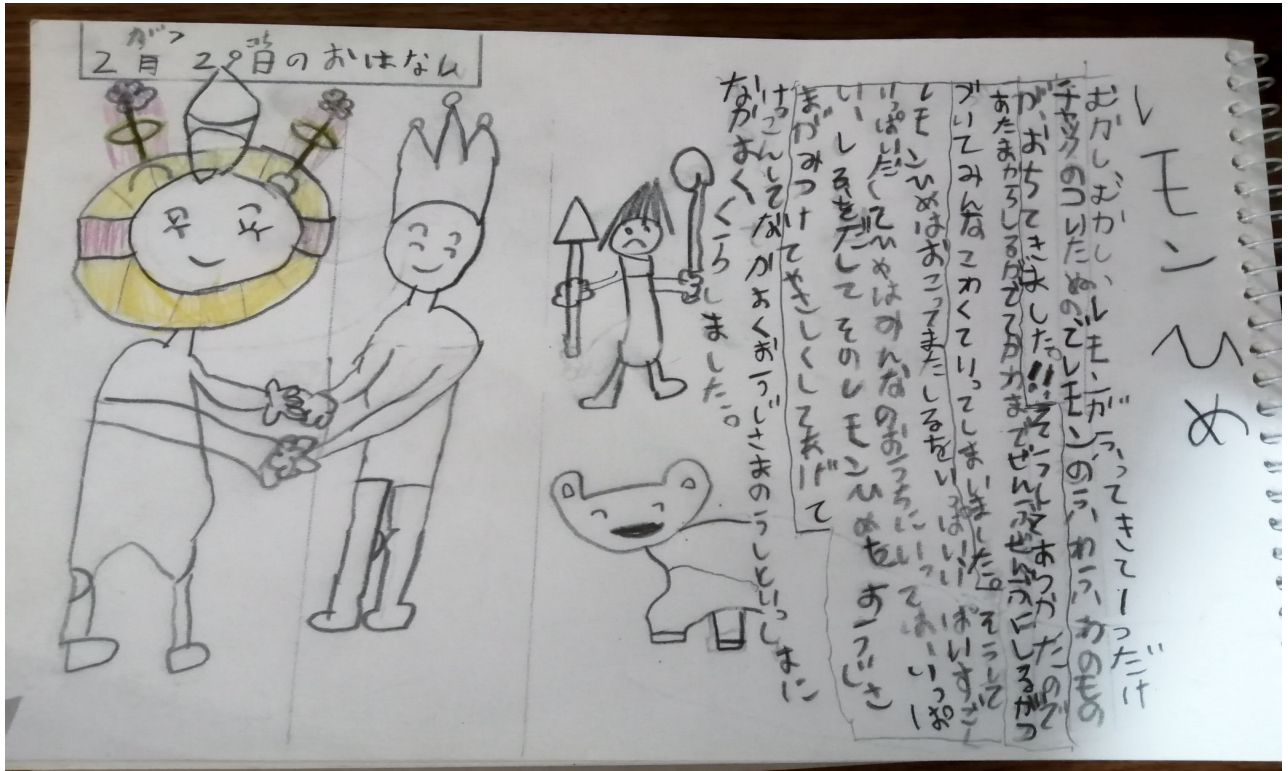 レモンひめ
むかしむかしいレモンがふってきて1つだけ
チャックのついたぬのでレモンのふわふわのもの
が、おちてきました。!!そうして
あたまからしるがでて までぜんぶぜんぶにしるがつ
づいてみんなこわくていってしまいました。そうして
レモンひめはおこってまたしるをいっぱいいっぱいすご
いっぱいだしてひめはみんなのおうちにいってはいっぱ
いしるをだしてそのレモンひめをおうじさ
まがみつけてやさしくしてあげて
けっこんしてながよくおうじさまのうしといっしょに
なかよくくらしました。
2月29日のおはなし
がつ